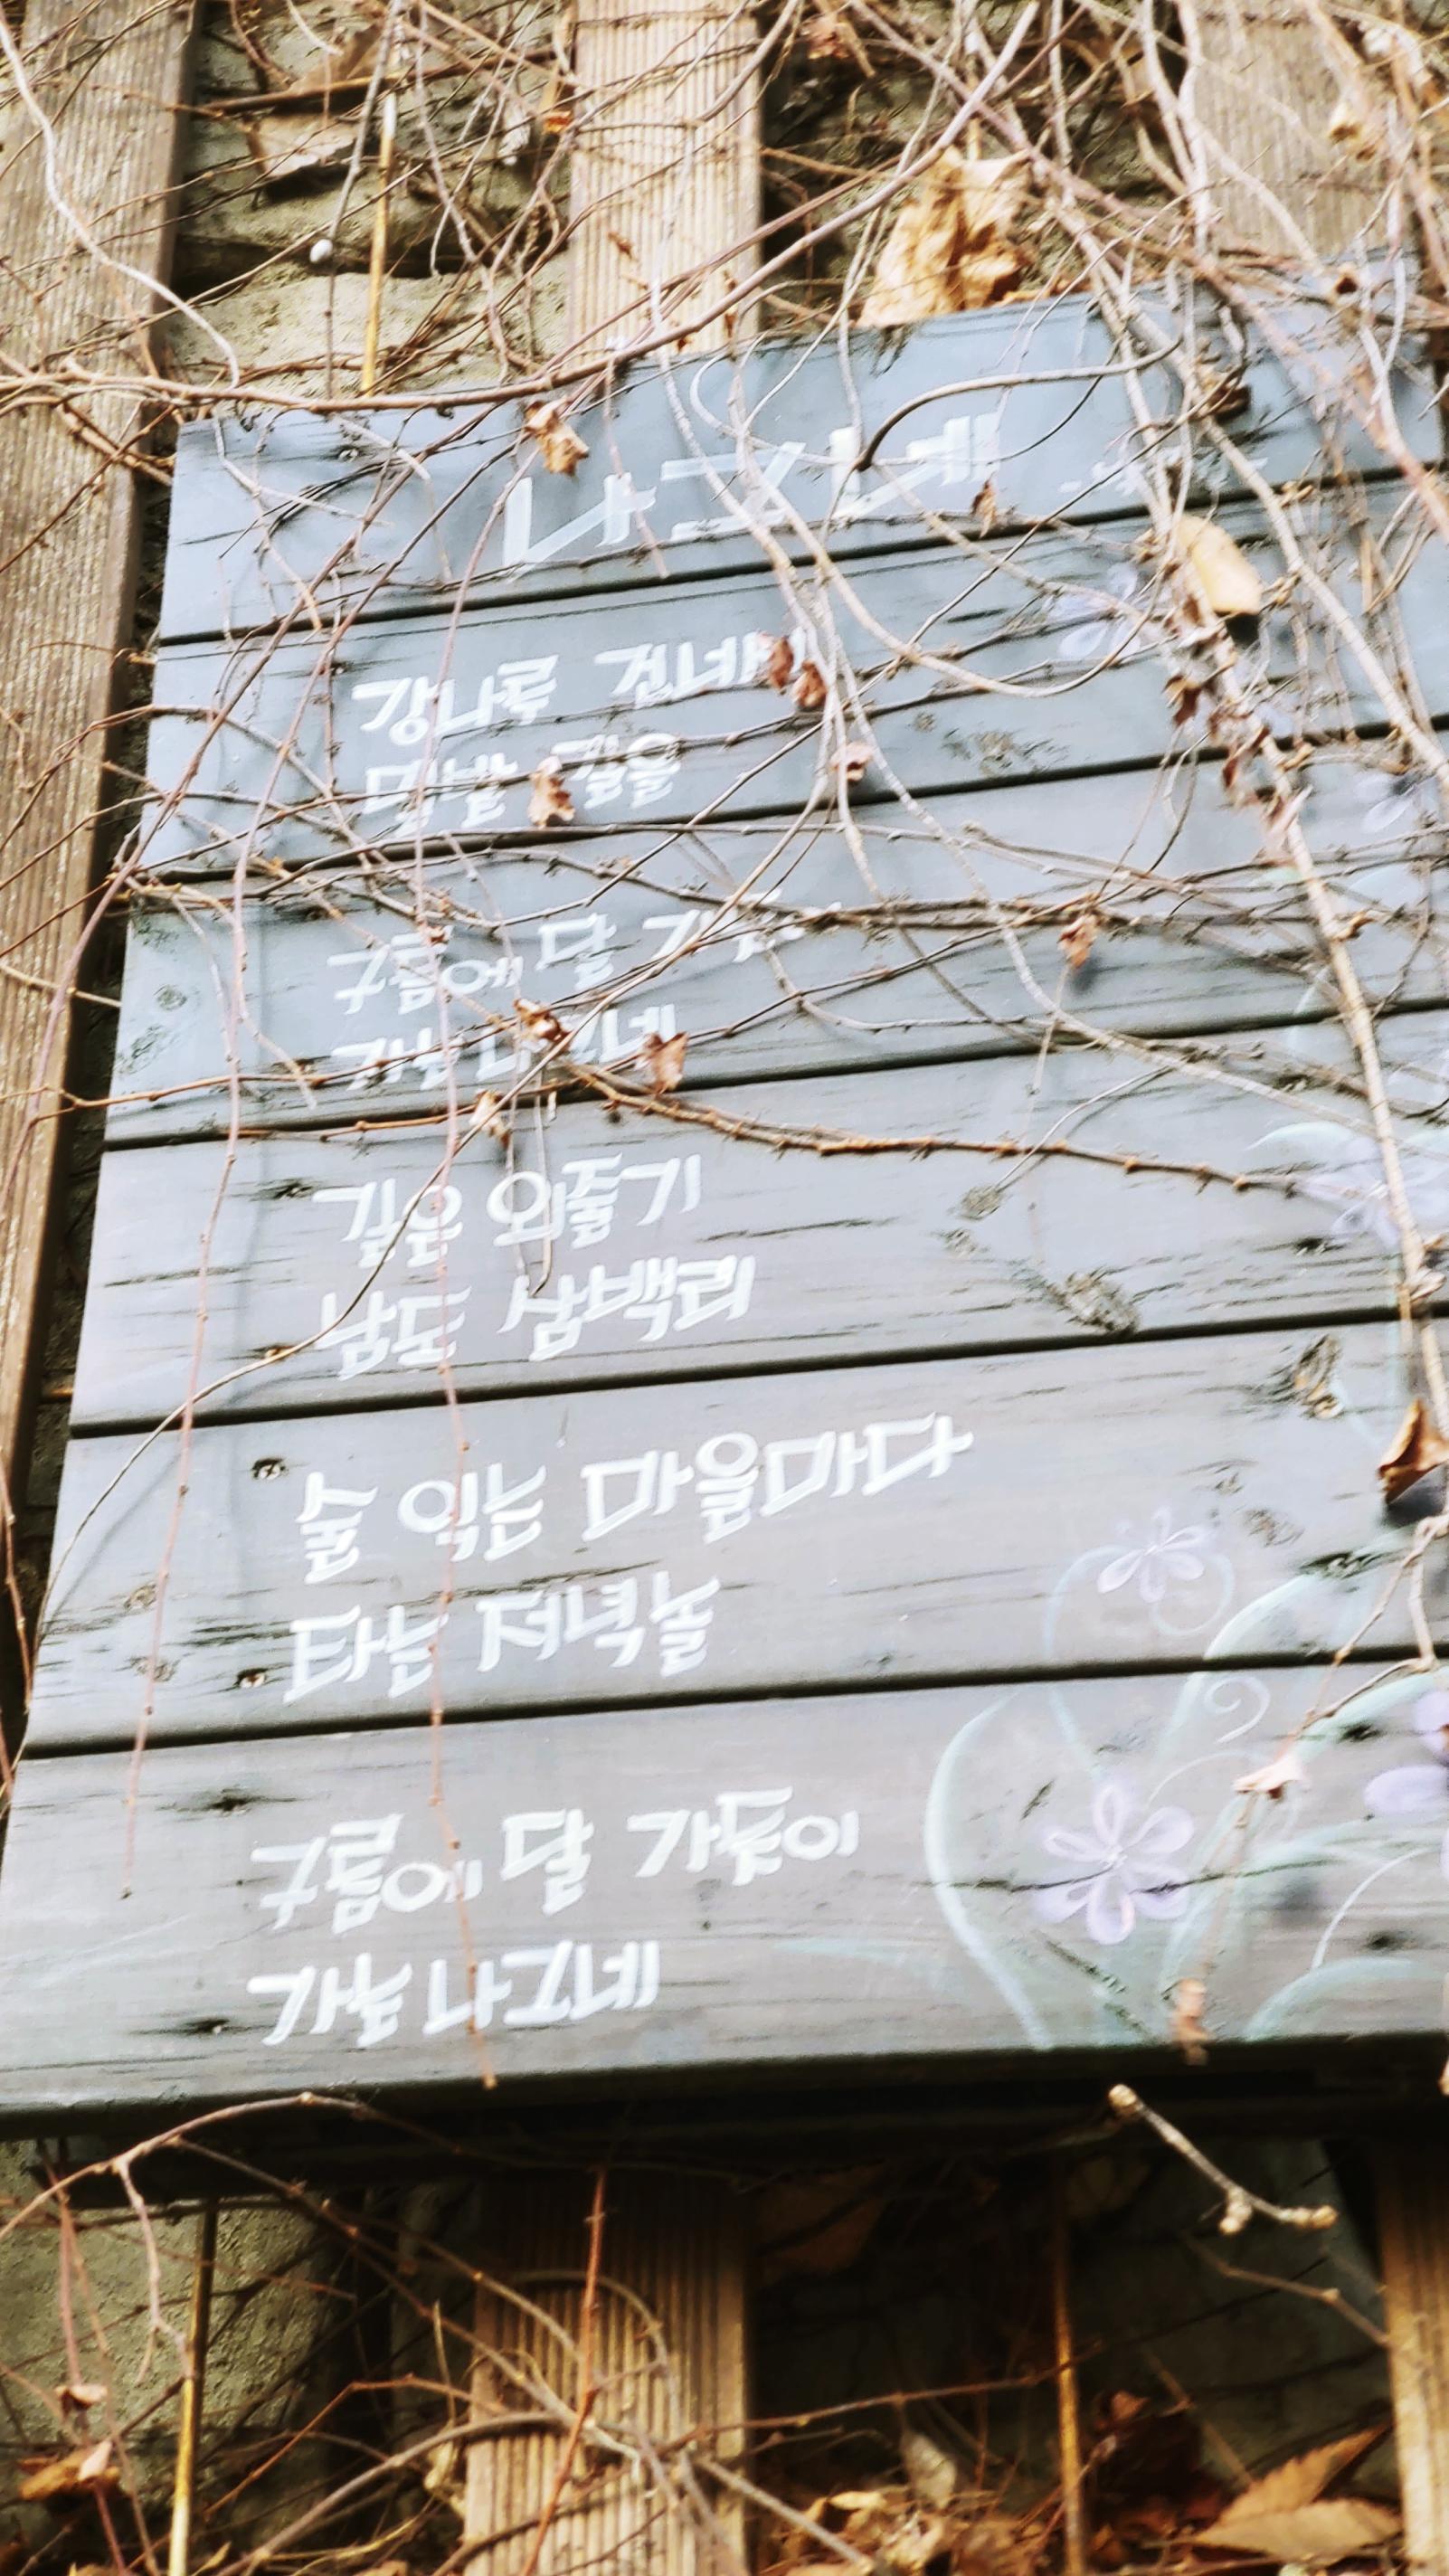 나그네
강나루 건너서
밀밭 길을
구름에 달 가듯이
가는 나그네
길은 외줄기
남도 삼백리
술 익는 마을마다
타는 저녁놀
구름에 달 가듯이
가는 나그네